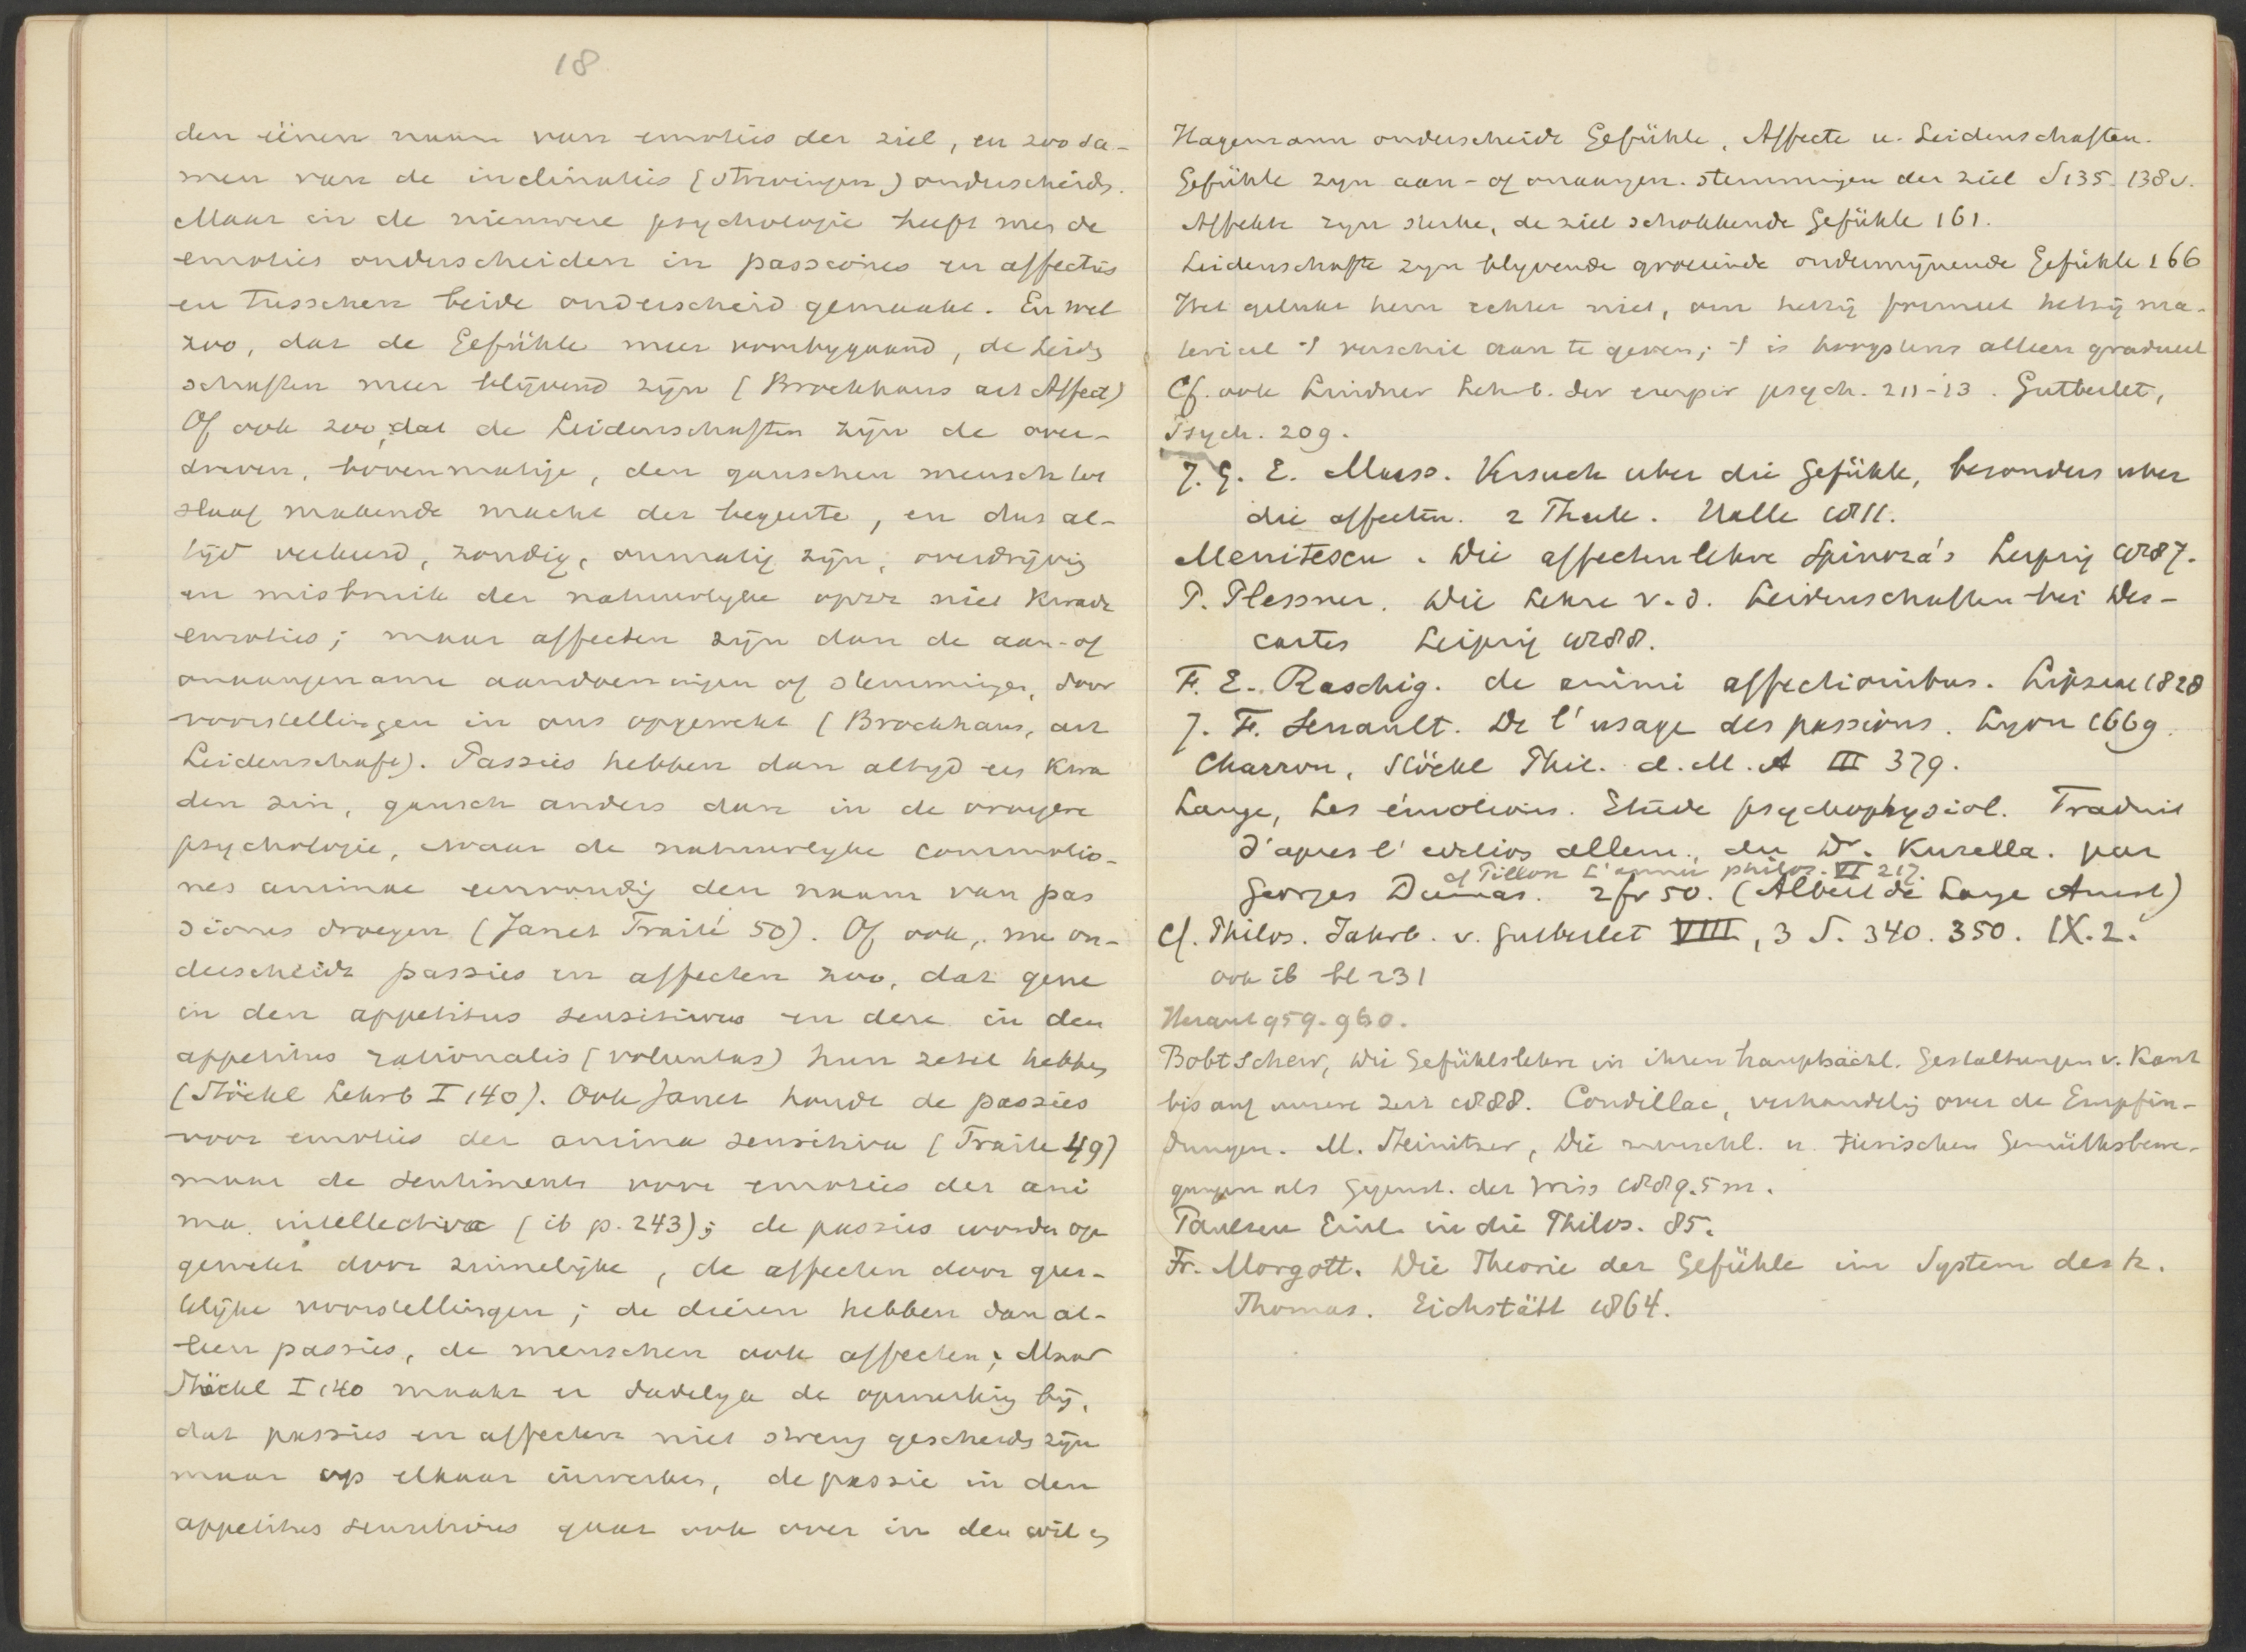 18
den éénen naam van emoties der ziel, en zoo sa-
men van de inclinaties (strevingen) onderscheids.
Maar in de nieuwere psychologie heeft men de
emoties onderscheiden in passiones en affectus
en tusschen beide onderscheid gemaakt. En wel
zoo, dat de Gefühle meer voorbygaand, de Leids
schaften meer blijvend zijn (Brockhaus art Affect)
Of ook zoo, dat de Leidenschaften zijn de over-
dreven, bovenmatige, den ganschen mensch tot
slaaf makende macht der begeerte, en dus al-
tijd verkeerd, zondig, onmatig zijn, overdrijvig
en misbruik der natuurlyke op zz niet kwade
emoties; maar affecten zijn dan de aan- of
onaangename aandoeningen of stemmingen, door
voorstellingen in ons opgewekt (Brockhaus, art
Leidenschaft). Passies hebben dan altyd een kwa
den zin, gansch anders dan in de vroegere
psychologie, waar de natuurlyke commotio-
nes animae eenvoudig den naam van pas
siones droegen (Janet Traité 50). Of ook, me on-
derscheidt passies en affecten zoo, dat gene
in den appetitus sensitivus en deze in den
appetitus rationalis (voluntas) hun zetel hebben
(Stöckl Lehrb I 140). Ook Janet houdt de passies
voor emoties der anima sensitiva (Traité 49)
maar de sentiments voor emoties der ani
ma intellectiva (ib p. 243); de passies worden op
gewekt door zinnelijke, de affecten door gees-
telijke voorstellingen; de dieren hebben dan al-
leen passies, de menschen ook affecten; Maar
Stöckl I 140 maakt er dadelyk de opmerking bij,
dat passies en affecten niet streng gescheids zijn
maar op elkaar inwerken, de passie in den
appetitus sensitivus gaat ook over in den wil en
Hagemann onderscheidt Gefühle, Affecte u. Leidenschaften.
Gefühle zyn aan- of onaangen. stemmingen der ziel S 135. 138 v.
Affekte zyn sterke, de ziel schokkende Gefühle 161.
Leidenschafte zyn blyvende groeiende ondermijnende Gefühle 166
Het gelukt hem echter niet, om hetzij formeel hetzij ma-
terieel 't verschil aan te geven; 't is hoogstens alleen gradueel
Cf. ook Lindner Lehrb. der empir psych. 211-13. Gutberlet,
Psych. 209.
J. G. E. Maass. Versuch uber die Gefühle, besonders uber
die affecten. 2 Theile. Halle 1811.
Menitescu. Die affectenlehre Spinoza's Leipzig 1887.
P. Plessner. Die Lehre v. d. Leidenschaften bei Des-
cartes Leipzig 1888.
F. E. Raschig. de animi affectionibus. Lipsiae 1828
J. F. Senault. De l'usage des passions. Lyon 1669.
Charron, Stöckl Phil. d. M. A III 379.
Lange, Les émotions. Etude psychophysiol. Traduit
d'apres l'edition allem., du Dr. Kurella. par
cf Pillon L'année philos. VI 217.
Georges Dumas. 2 fr 50. (Albert de Lange Amst)
Cf. Philos. Jahrb. v. Gutberlet VIII, 3 S. 340. 350. IX. 2.
ook ib bl 231
Heraut 959. 960.
Bobtschew, Die Gefühlslehre in ihren hauptsächl. Gestaltungen v. Kant
bis auf unsere Zeit 1888. Condillac, verhandelig over de Empfin-
dungen. M. Steinitzer, Die menschl. u. tierischen Gemüthsbewe-
gungen als Gegenst. der Wiss 1889. 5 m.
Paulsen Einl. in die Philos. 85.
Fr. Morgott. Die Theorie der Gefühle im System des h.
Thomas. Eichstätt 1864.